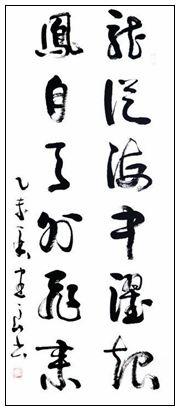 龍從海中躍起
鳳自天外飛來
乙未夏建良書